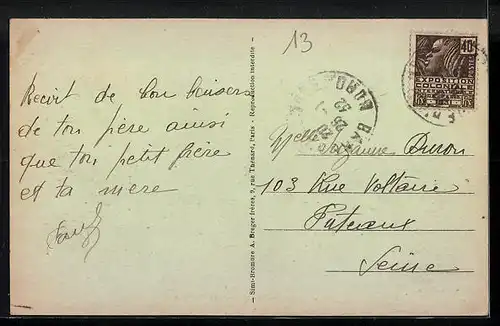 13
Reçoit de bon baisers
de ton père ainsi
que ton petit frère
et ta mère
Simi-Bromure A. Breger frères, 9, rue Thénard, Paris - Reproduction interdite -
40c
POSTES
EXPOSITION
COLONIALE
INTERNATIONALE
PARIS 1931
Melle Suzanne Duron
103 Rue Voltaire
Puteaux
Seine